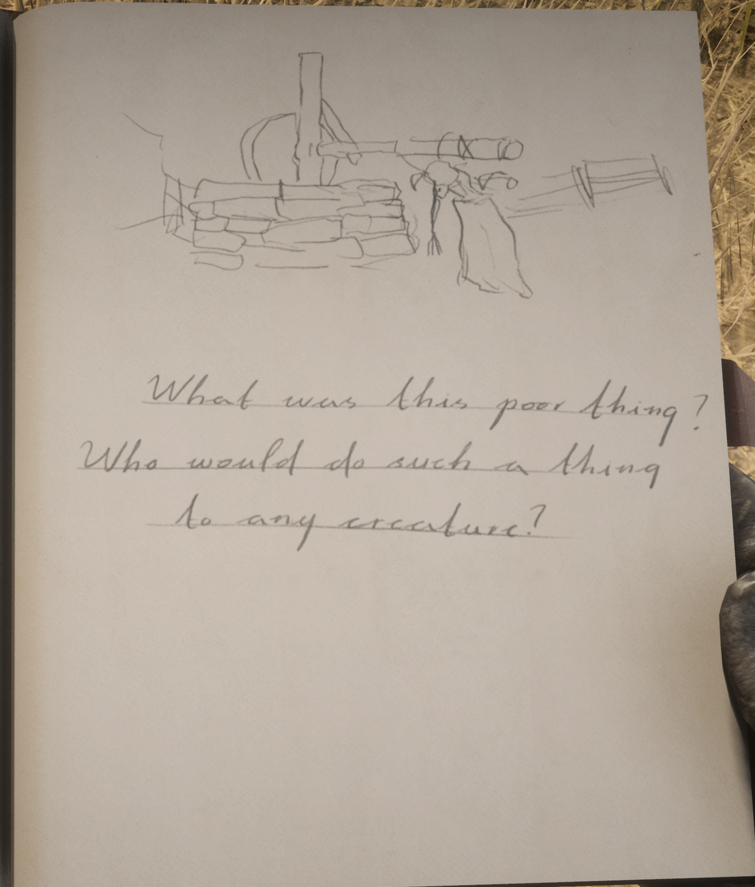 What was this poor thing?
Who would do such a thing
to any creature?